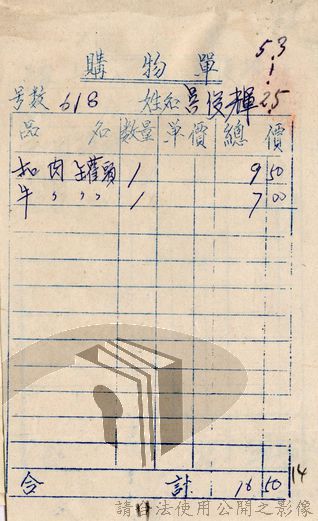 53.1.25
購物單
号数 618 姓名 吕俊輝
品名 数量 单價 總價
扣肉罐頭 1 9 50
牛〃〃〃 1 7 00
合計 16 50
14
請合法使用公開之影像